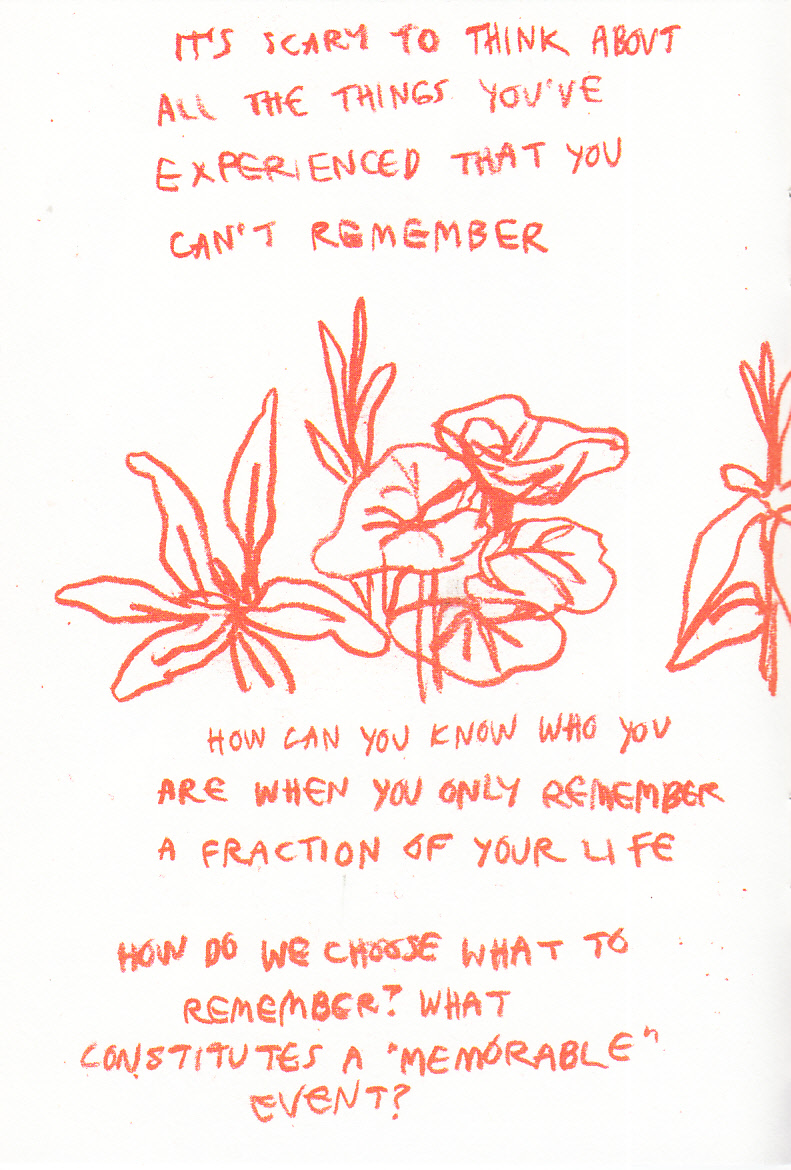 IT'S SCARY TO THINK ABOUT
ALL THE THINGS YOU'VE
EXPERIENCED THAT YOU
CAN'T REMEMBER
HOW CAN YOU KNOW WHO YOU
ARE WHEN YOU ONLY REMEMBER
A FRACTION OF YOUR LIFE
HOW DO WE CHOOSE WHAT TO
REMEMBER? WHAT
CONSTITUTES A "MEMORABLE"
EVENT?